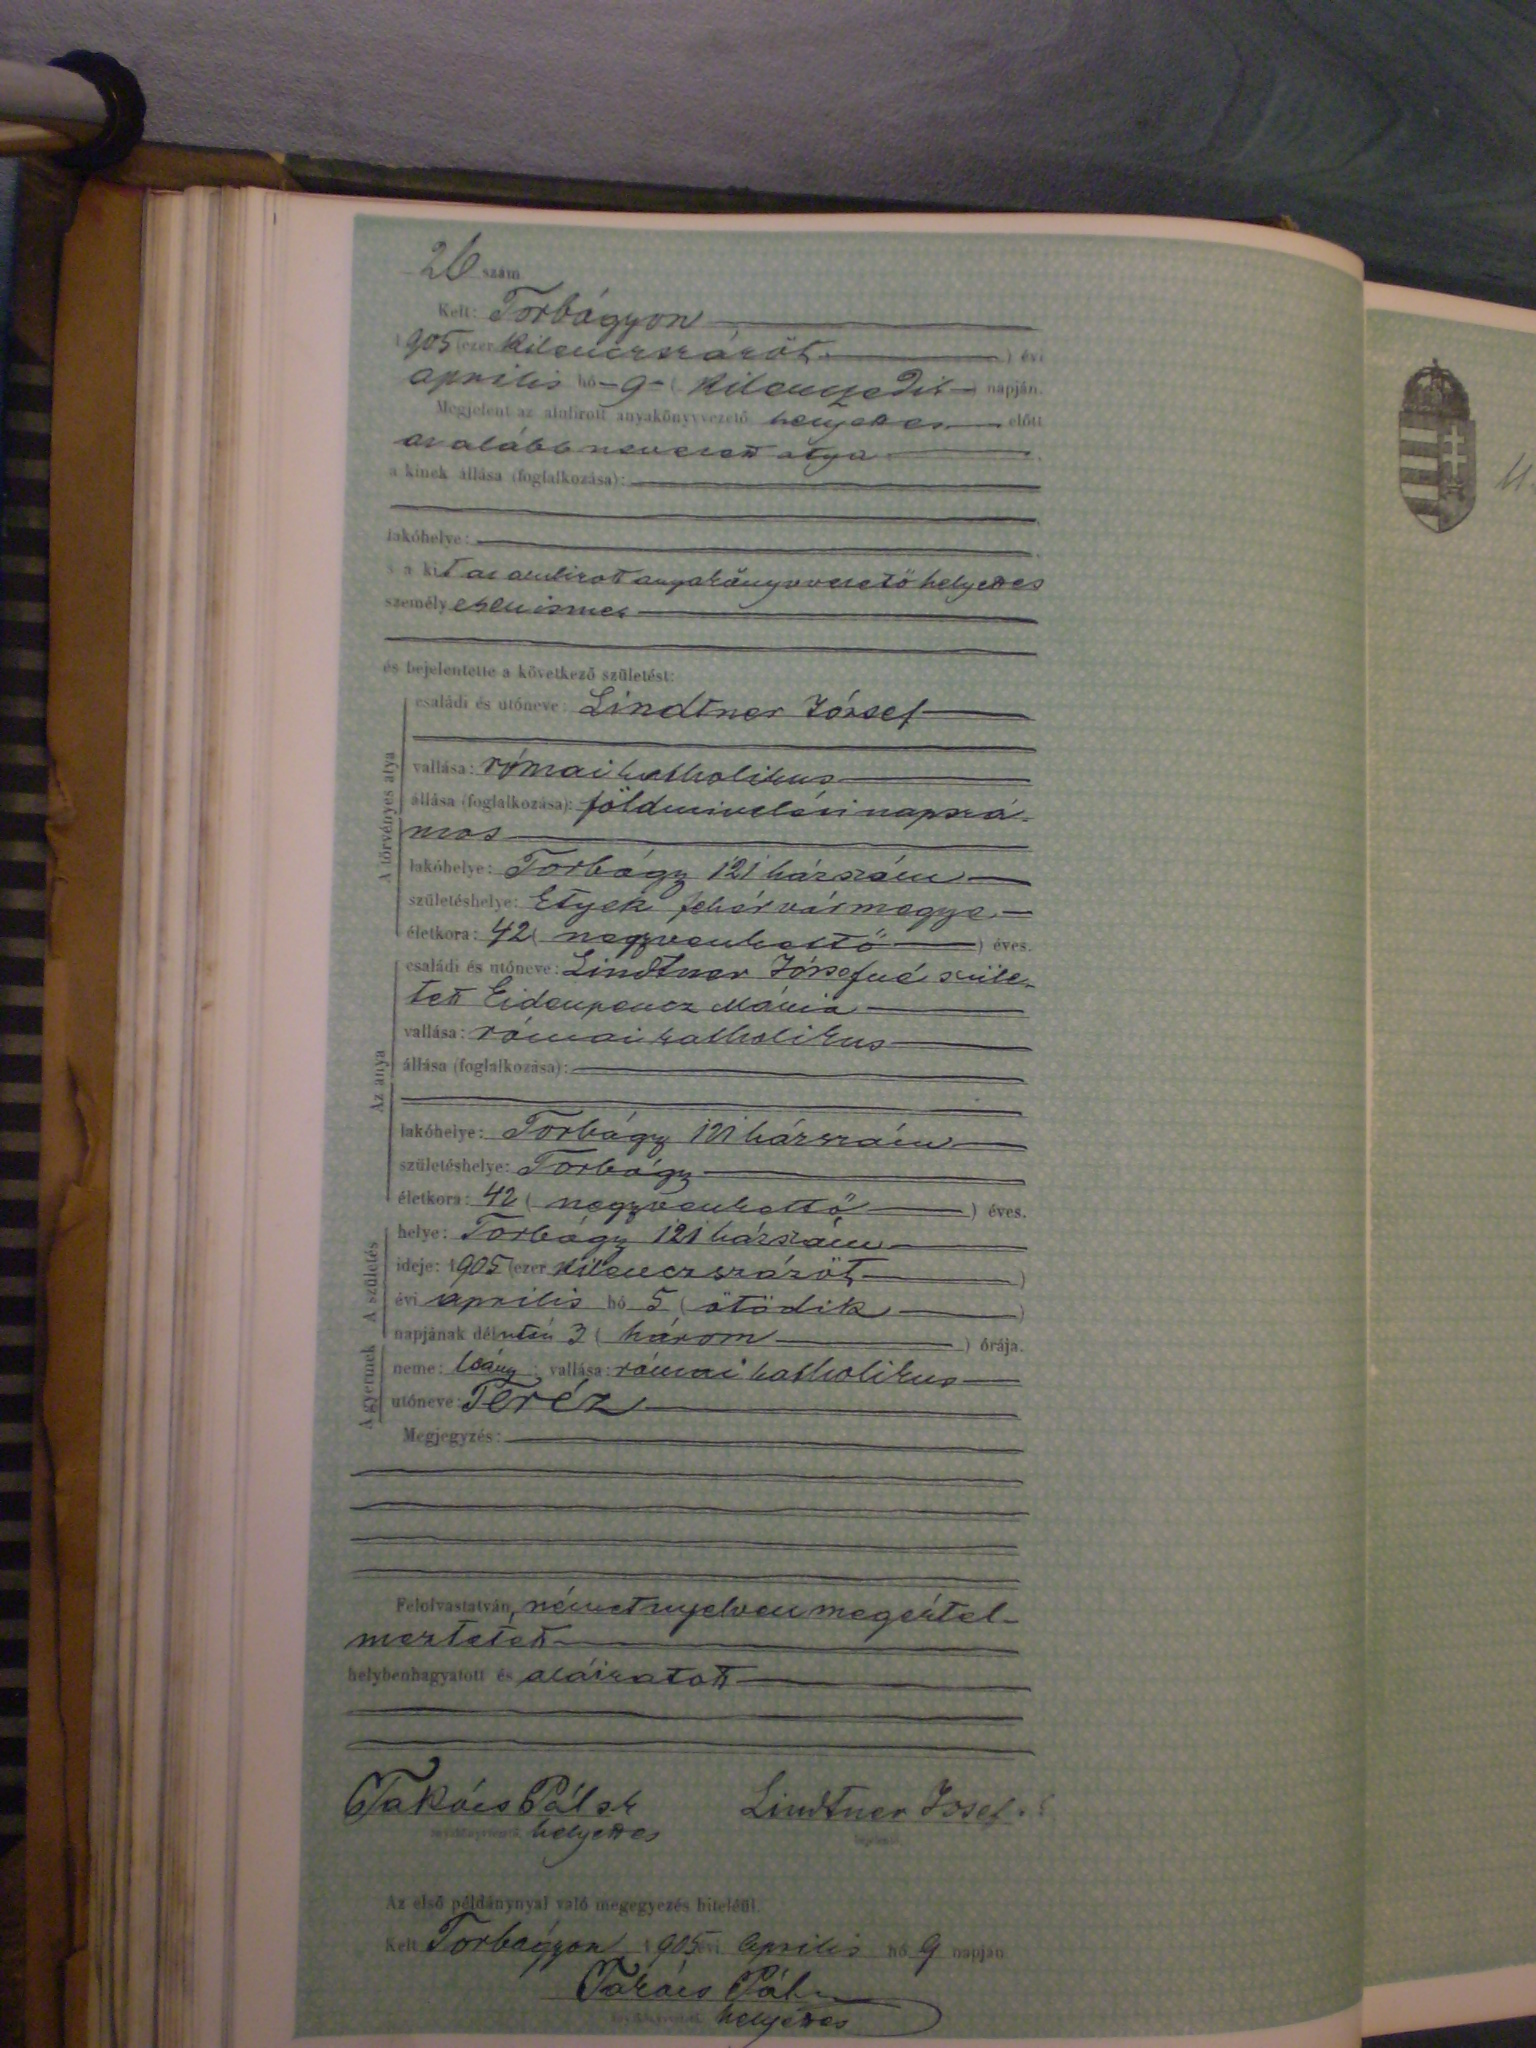 26 szám
Kelt: Torbágyon
1905 (ezer kilenczszázöt) évi
április hó 9 (kilenczedik) napján.
Megjelent az alulirott anyakönyvvezető helyettes előtt
az alább nevezett atya
a kinek állása (foglalkozása):
lakóhelye:
s a kit az alulirott anyakönyvvezető helyettes
személyesen ismer
és bejelentette a következő születést:
A törvényes atya
családi és utóneve: Lindtner József
vallása: római katholikus
állása (foglalkozása): földmivelési napszá-
mos
lakóhelye: Torbágy 121 házszám
születéshelye: Etyek fehérvármegye
életkora: 42 (negyvenkettő) éves.
Az anya
családi és utóneve: Lindtner Józsefné szüle-
tett Eidenpencz Mária
vallása: római katholikus
állása (foglalkozása):
lakóhelye: Torbágy 121 házszám
születéshelye: Torbágy
életkora: 42 (negyvenkettő) éves.
A születés
helye: Torbágy 121 házszám
ideje: 1905 (ezer kilenczszázöt)
évi április hó 5 (ötödik)
napjának délután 3 (három) órája.
A gyermek
neme: leány; vallása: római katholikus
utóneve: Teréz
Megjegyzés:
Felolvastatván, német nyelven megértel-
meztetett
helybenhagyatott és aláiratott
Takács Pál sk Lindtner Josef
helyettes
Az első példánynyal való megegyezés hiteléül.
Kelt Torbágyon 1905 évi április hó 9 napján
Takács Pál
helyettes